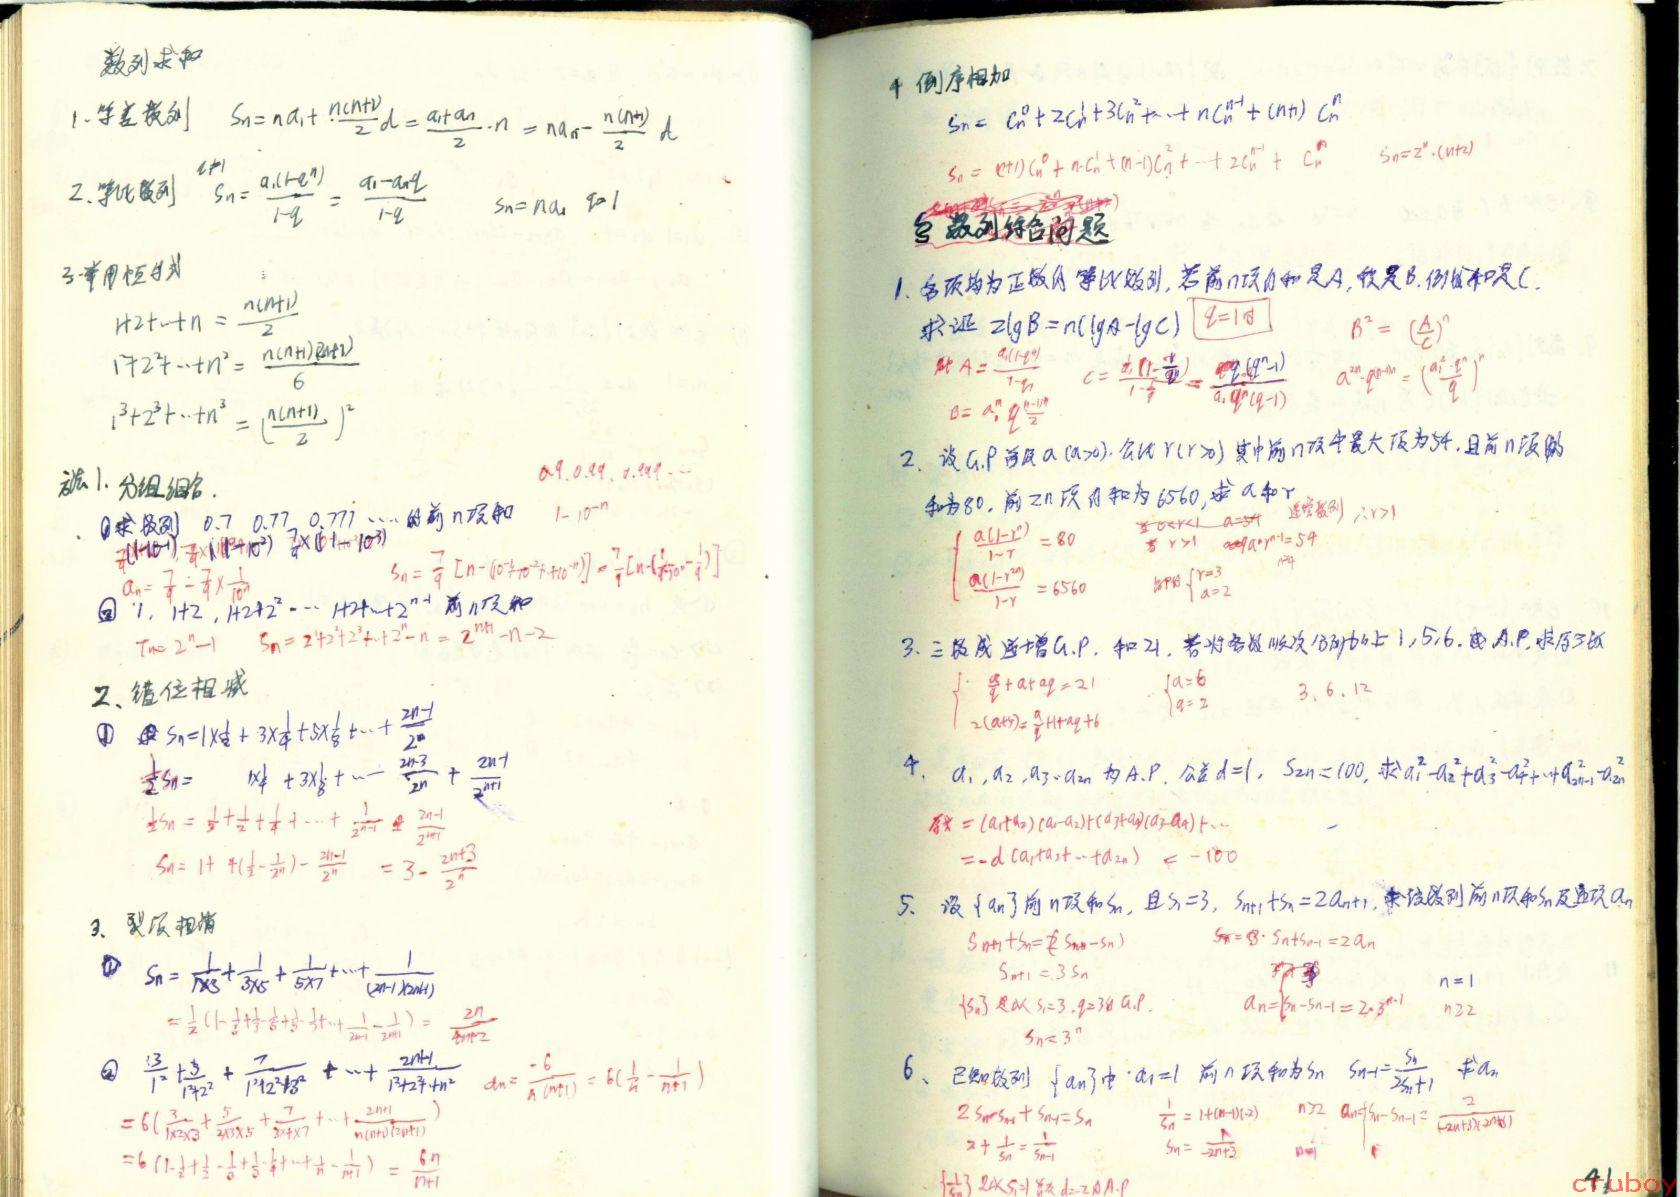 数列求和
1. 等差数列 Sn = na₁ + n(n+2)/2 d = (a₁+an)/2 · n = nan - n(n+1)/2 d
2. 等比数列 q≠1 Sn = a₁(1-qⁿ)/(1-q) = (a₁-anq)/(1-q) Sn = na₁ q=1
3. 常用恒等式
1+2+…+n = n(n+1)/2
1²+2²+…+n² = n(n+1)(2n+1)/6
1³+2³+…+n³ = (n(n+1)/2)²
方法1. 分组组合.
0.9, 0.99, 0.999 …
① 求数列 0.7 0.77 0.777 …… 的前n项和 1-10⁻ⁿ
an = 7/9 - 7/9 × 1/10ⁿ
Sn = 7/9 [n-(10⁻¹+10⁻²+…+10⁻ⁿ)]
② 1, 1+2, 1+2+2² … 1+2+…+2ⁿ⁻¹ 前n项和
Tn = 2ⁿ-1 Sn = 2+2²+2³+…+2ⁿ-n = 2ⁿ⁺¹-n-2
2、错位相减
① Sn = 1×1/2 + 3×1/4 + 5×1/8 + … + (2n-1)/2ⁿ
1/2 Sn = 1×1/4 + 3×1/8 + … (2n-3)/2ⁿ + (2n-1)/2ⁿ⁺¹
1/2 Sn = 1/2 + 1/2 + 1/4 + … + 1/2ⁿ⁻¹ - (2n-1)/2ⁿ⁺¹
Sn = 1 + 4(1/2 - 1/2ⁿ) - (2n-1)/2ⁿ = 3 - (2n+3)/2ⁿ
3、裂项相消
① Sn = 1/(1×3) + 1/(3×5) + 1/(5×7) + … + 1/((2n-1)(2n+1))
= 1/2 (1-1/3+1/3-1/5+1/5-1/7+…+1/(2n-1)-1/(2n+1)) = 2n/(4n+2)
② 3/1² + 5/(1²+2²) + 7/(1²+2²+3²) + … + (2n+1)/(1²+2²+…+n²) an = 6/(n(n+1)) = 6(1/n - 1/(n+1))
= 6(3/(1×2×3) + 5/(2×3×5) + 7/(3×4×7) + … + (2n+1)/(n(n+1)(2n+1)))
= 6(1-1/2+1/2-1/3+1/3-1/4+…+1/n-1/(n+1)) = 6n/(n+1)
4 倒序相加
Sn = Cn⁰ + 2Cn¹ + 3Cn² + … + nCnⁿ⁻¹ + (n+1)Cnⁿ
Sn = (n+1)Cn⁰ + n·Cn¹ + (n-1)Cn² + … + 2Cnⁿ⁻¹ + Cnⁿ Sn = 2ⁿ·(n+2)
数列综合问题
1. 各项均为正数的等比数列, 若前n项的和是A, 积是B. 倒数和是C.
求证 2lgB = n(lgA-lgC) q=1时 B² = (A/C)ⁿ
A = a₁(1-qⁿ)/(1-q)
B = a₁ⁿ q^(n(n-1)/2)
2. 设G.P首项a(a>0). 公比r(r>0) 其中前n项中最大项为54. 且前n项的
和为80, 前2n项的和为6560, 求a和r
a(1-rⁿ)/(1-r) = 80 递增数列 ∴r>1
a(1-r²ⁿ)/(1-r) = 6560 r=3 a=2
3. 三数成递增G.P. 和21. 若将各数顺次分别加上1,5,6. 成A.P. 求原三数
a/q + a + aq = 21 a=6 q=2 3, 6, 12
2(a+5) = a/q+1+aq+6
4. a₁, a₂, a₃…a2n 为A.P. 公差d=1, S2n=100, 求a₁²-a₂²+a₃²-a₄²+…+a²2n-1-a²2n
原式 = (a₁+a₂)(a₁-a₂)+(a₃+a₄)(a₃-a₄)+…
= -d(a₁+a₂+…+a2n) = -100
5. 设{an}前n项和Sn, 且S₁=3, Sn+1+Sn=2an+1, 求该数列前n项和Sn及通项an
Sn+1+Sn=2(Sn+1-Sn) Sn+Sn-1=2an
Sn+1=3Sn n=1
{Sn}是以S₁=3, q=3的G.P. an= Sn-Sn-1=2·3ⁿ⁻¹ n≥2
Sn=3ⁿ
6、已知数列{an}中·a₁=1 前n项和为Sn Sn-1=Sn/(2Sn+1) 求an
2SnSn-1+Sn-1=Sn 1/Sn=1+(n-1)(-2) n≥2 an=Sn-Sn-1=2/((-2n+3)(-2n+5))
2+1/Sn=1/Sn-1 Sn=1/(-2n+3) n=1 1
41
cruboy